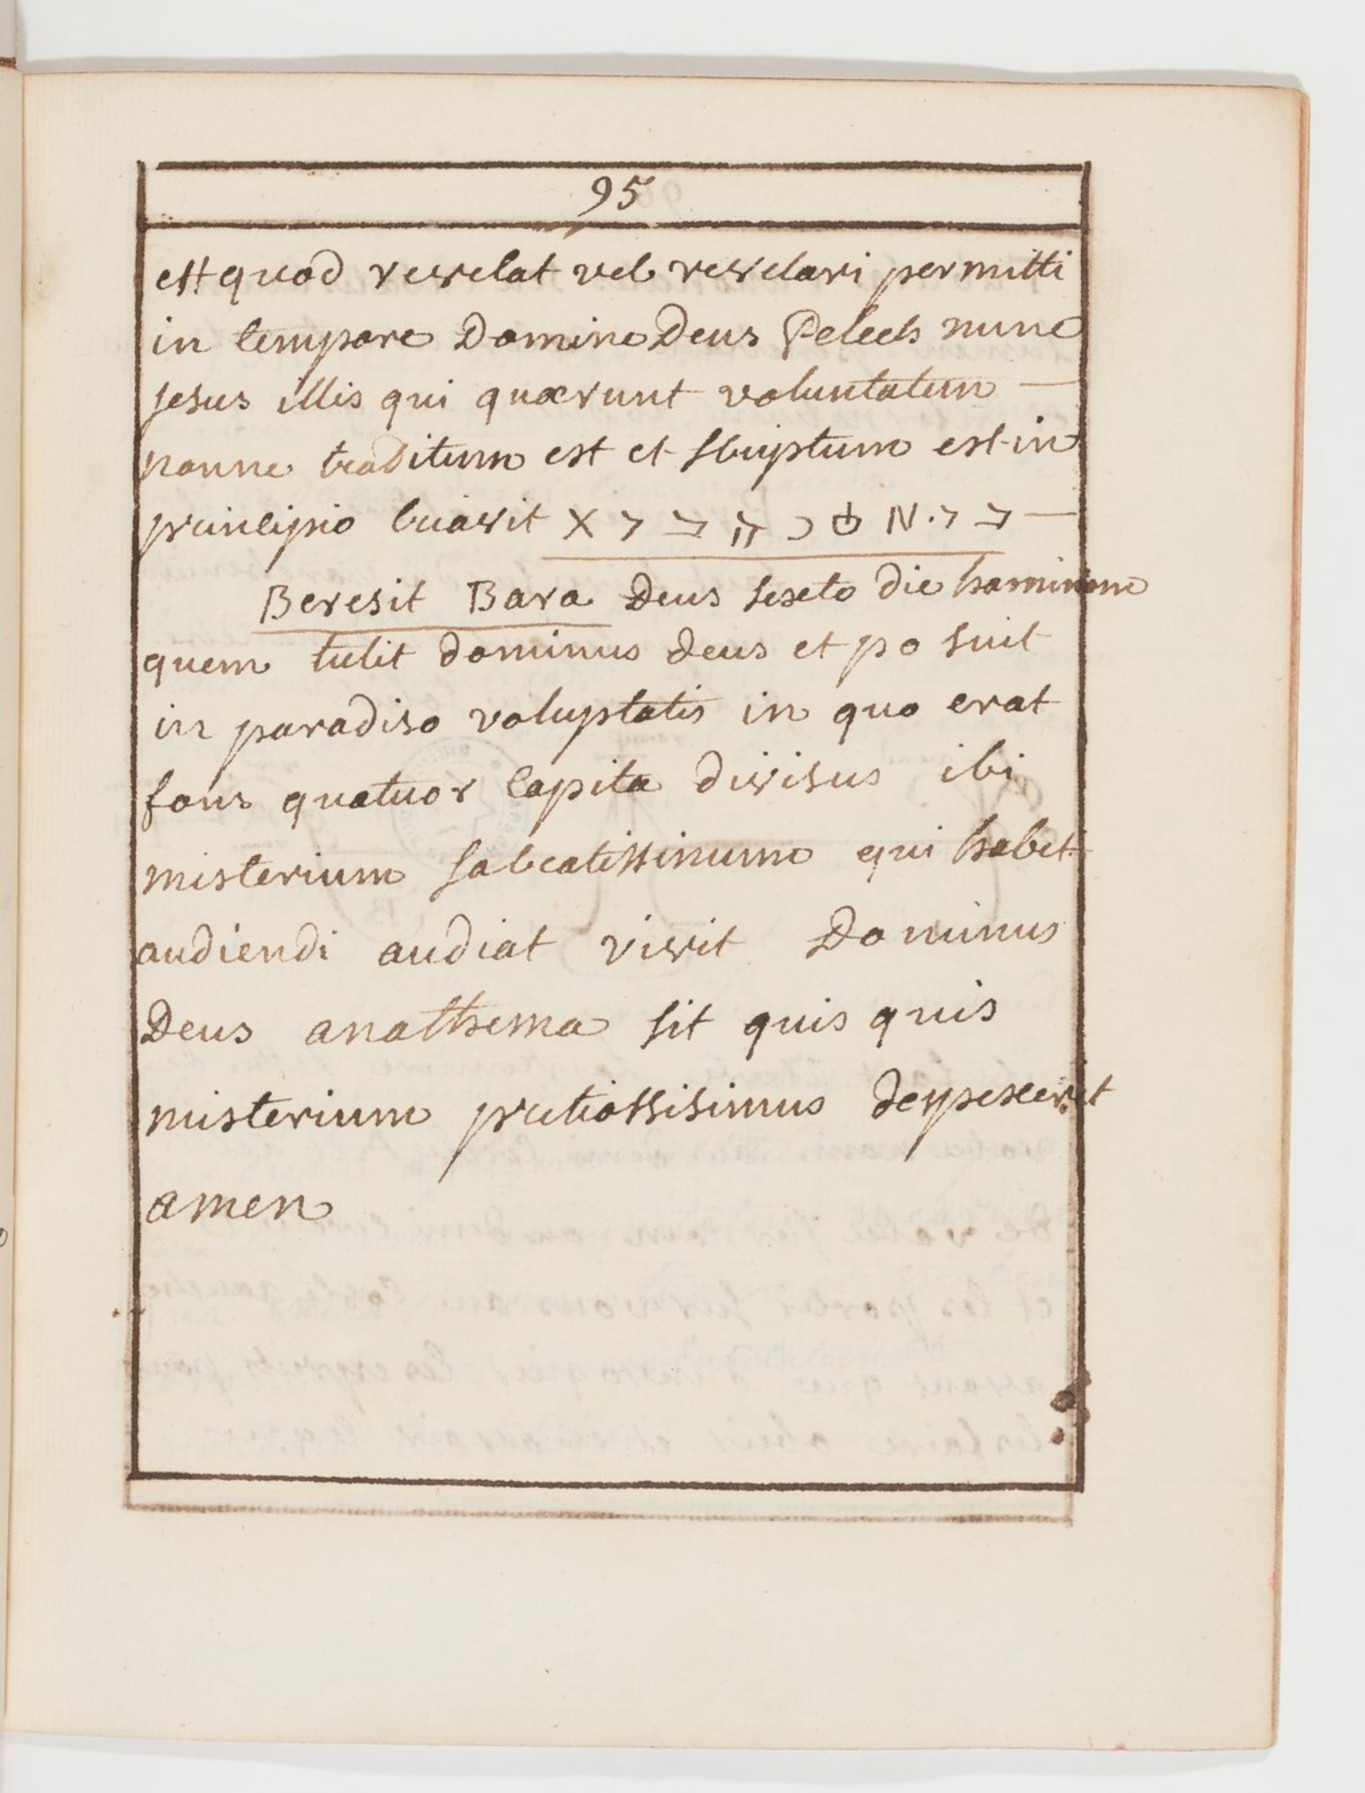 95
est quod revelat vel revelari permitti
in tempore Domine Deus Pelech nunc
jesus illis qui quærunt voluntatem —
nonne traditum est et scriptum est in
principio creavit
Beresit Bara Deus sexto die hominem
quem tulit dominus deus et posuit
in paradiso voluptatis in quo erat
fons quatuor Capita divisus ibi
misterium qui habet
audiendi audiat vivit Dominus
Deus anathema sit quis quis
misterium pretiossisimus despexerit
amen